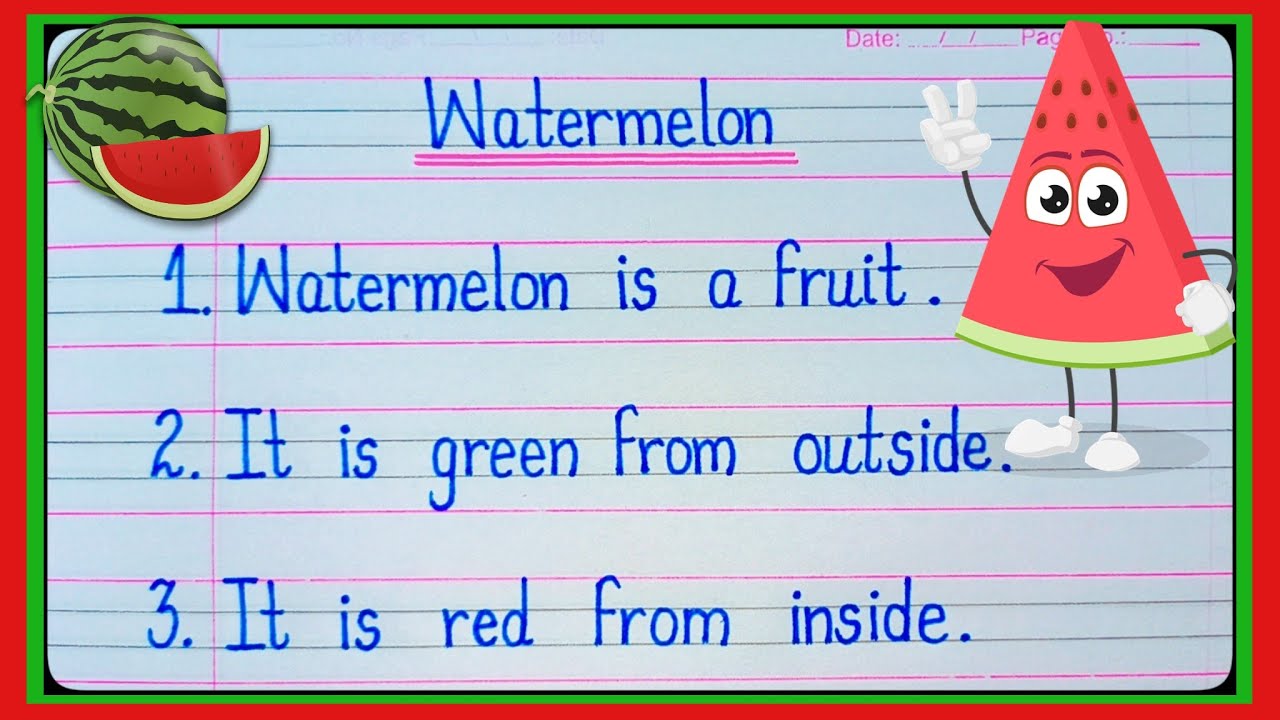 Date: __/__/__ Page No.:______
Watermelon
1. Watermelon is a fruit.
2. It is green from outside.
3. It is red from inside.